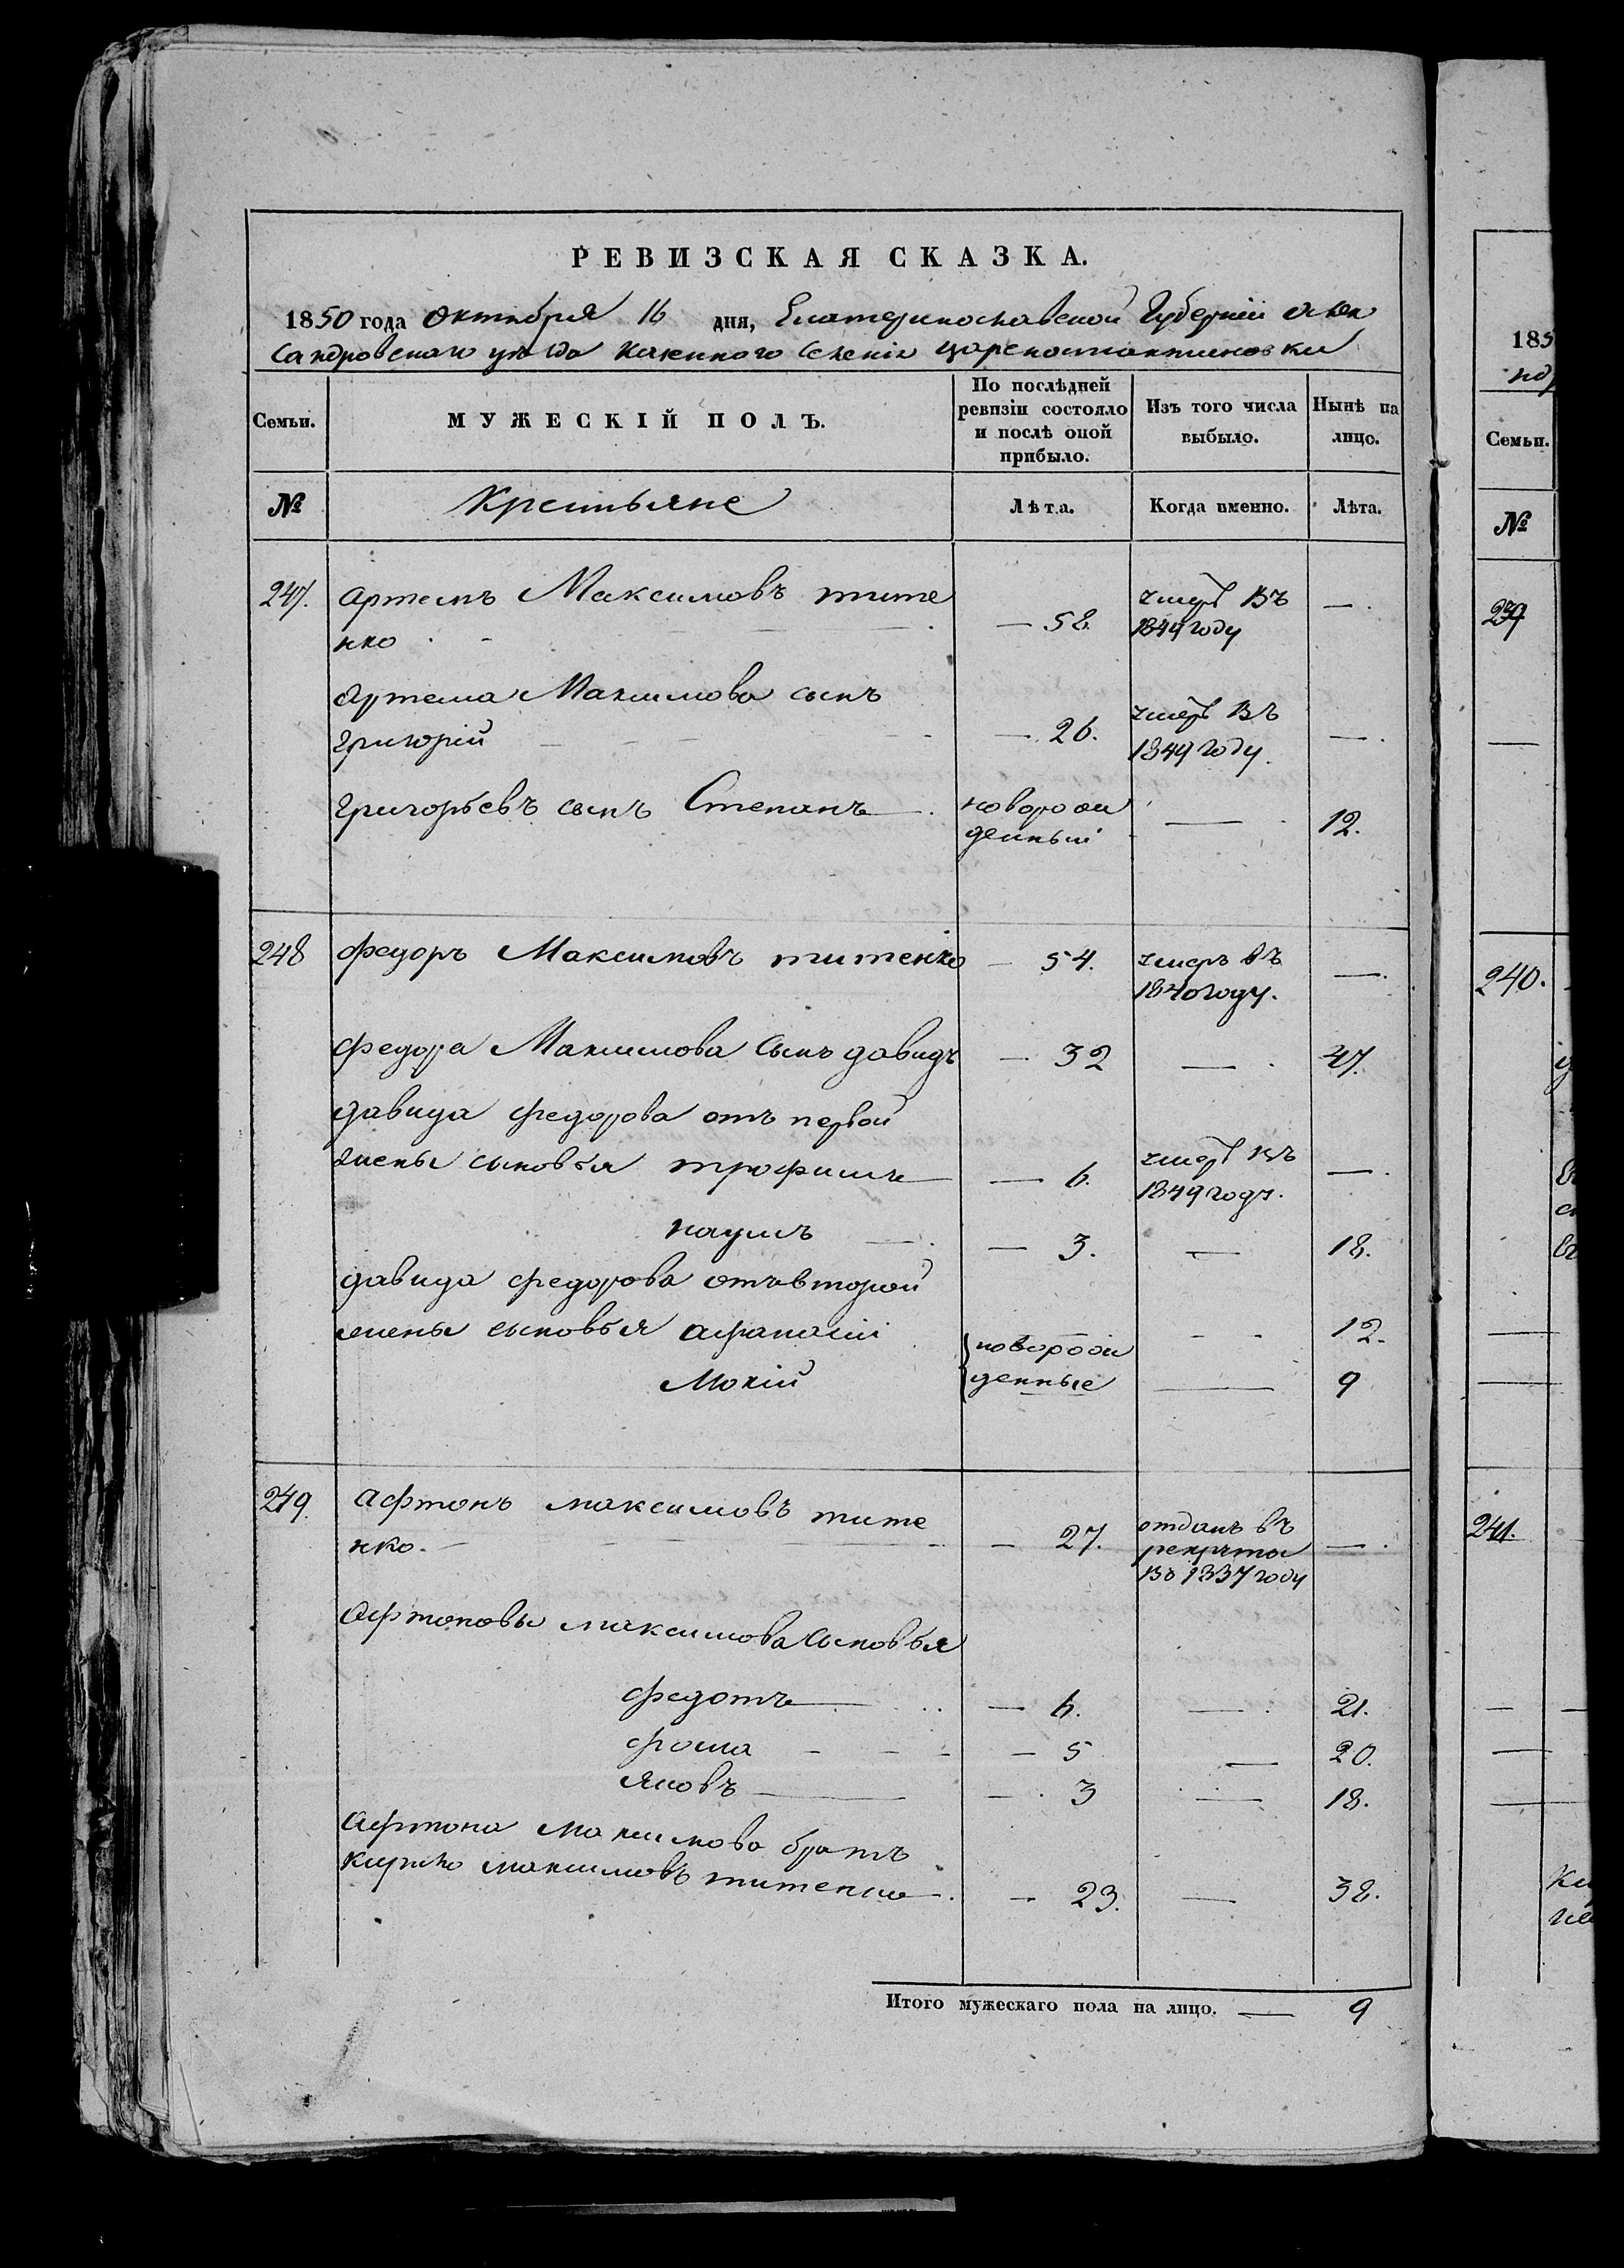 РЕВИЗСКАЯ СКАЗКА.
1850 года Октября 16 дня, Екатеринославской Губерніи Алек
сандровскаго уѣзда Казенного Селенія Цареконстантиновки
Семьи.
МУЖЕСКІЙ ПОЛЪ.
По послѣдней
ревизіи состояло
и послѣ оной
прибыло.
Изъ того числа
выбыло.
Нынѣ на
лицо.
№ Крестьяне Лѣта. Когда именно. Лѣта.
247. Артемъ Максимовъ тите
нко — 58. умеръ въ
1849 году —
Артема Максимова сынъ
григорій — 26. умеръ въ
1849 году. —
григорьевъ сынъ Степанъ — новорож
денный — 12.
248 федоръ Максимовъ титенко — 54. умеръ въ
1840 году. —
федора Максимова сынъ давидъ — 32 — 47.
давида федорова отъ первой
жены сыновья трофимъ — 6. умеръ въ
1849 году. —
наумъ — 3. — 18.
давида федорова отъ второй
жены сыновья афанасій — 12.
новорож
денные
Мокій — 9
249. афтонъ максимовъ тите
нко. — 27. отданъ въ
рекруты
въ 1837 году —
Афтоновы максимова сыновья
федотъ — 6. — 21.
фома — 5 — 20.
яковъ — 3 — 18.
Афтона максимова братъ
кирило максимовъ титенко — 23. — 38.
Итого мужескаго пола на лицо. — 9
185
Семьи.
№
239
240.
241.